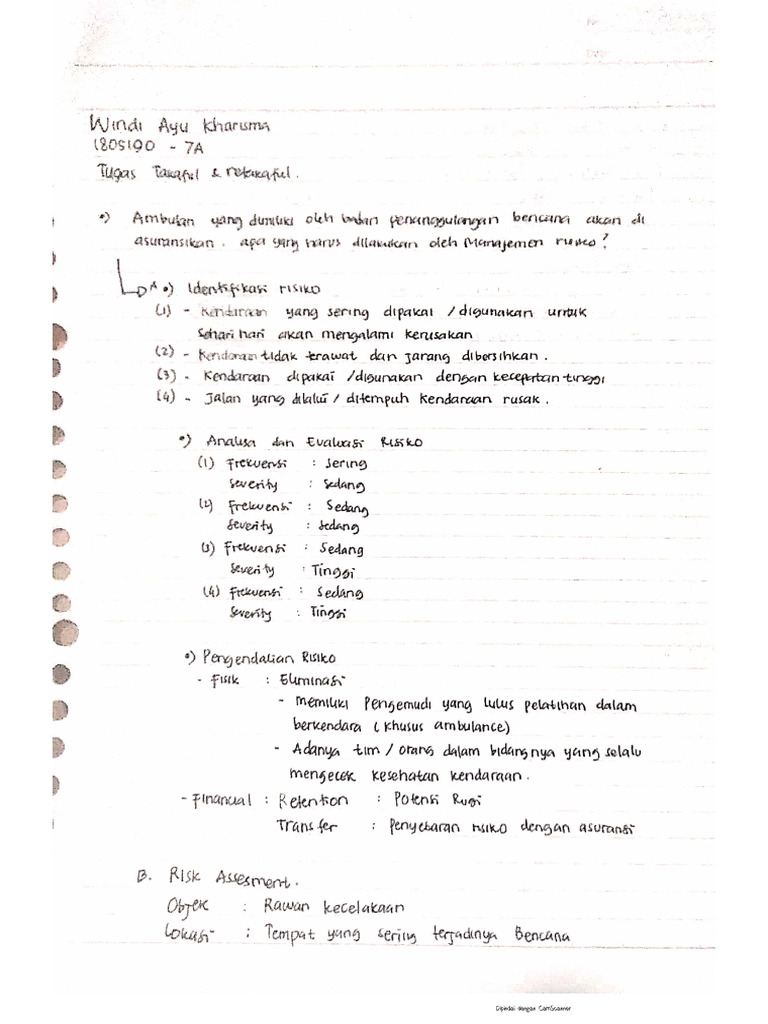 Windi Ayu Kharisma
1805190 - 7A
Tugas Takaful & retakaful.
•) Ambulan yang dimiliki oleh badan penanggulangan bencana akan di
asuransikan. apa yang harus dilakukan oleh Manajemen risiko?
A •) Identifikasi risiko
(1) - Kendaraan yang sering dipakai / digunakan untuk
sehari hari akan mengalami kerusakan
(2) - Kendaraan tidak terawat dan jarang dibersihkan.
(3) - Kendaraan dipakai / digunakan dengan kecepatan tinggi
(4) - Jalan yang dilalui / ditempuh kendaraan rusak.
•) Analisa dan Evaluasi Risiko
(1) Frekuensi : Sering
Severity : Sedang
(2) Frekuensi : Sedang
Severity : Sedang
(3) Frekuensi : Sedang
Severity : Tinggi
(4) Frekuensi : Sedang
Severity : Tinggi
•) Pengendalian Risiko
- Fisik : Eliminasi
- Memiliki Pengemudi yang lulus pelatihan dalam
berkendara (khusus ambulance)
- Adanya tim / orang dalam bidangnya yang selalu
mengecek kesehatan kendaraan.
- Financial : Retention : Potensi Rugi
Transfer : Penyebaran risiko dengan asuransi
B. Risk Assesment.
Objek : Rawan kecelakaan
Lokasi : Tempat yang sering terjadinya Bencana
Dipindai dengan CamScanner